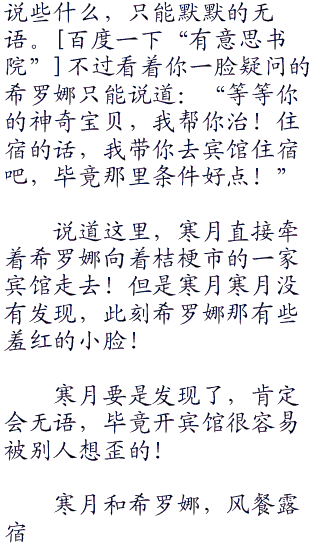 说些什么，只能默默的无
语。[百度一下“有意思书
院”]不过看着你一脸疑问的
希罗娜只能说道：“等等你
的神奇宝贝，我帮你治！住
宿的话，我带你去宾馆住宿
吧，毕竟那里条件好点！”
说道这里，寒月直接牵
着希罗娜向着桔梗市的一家
宾馆走去！但是寒月寒月没
有发现，此刻希罗娜那有些
羞红的小脸！
寒月要是发现了，肯定
会无语，毕竟开宾馆很容易
被别人想歪的！
寒月和希罗娜，风餐露
宿